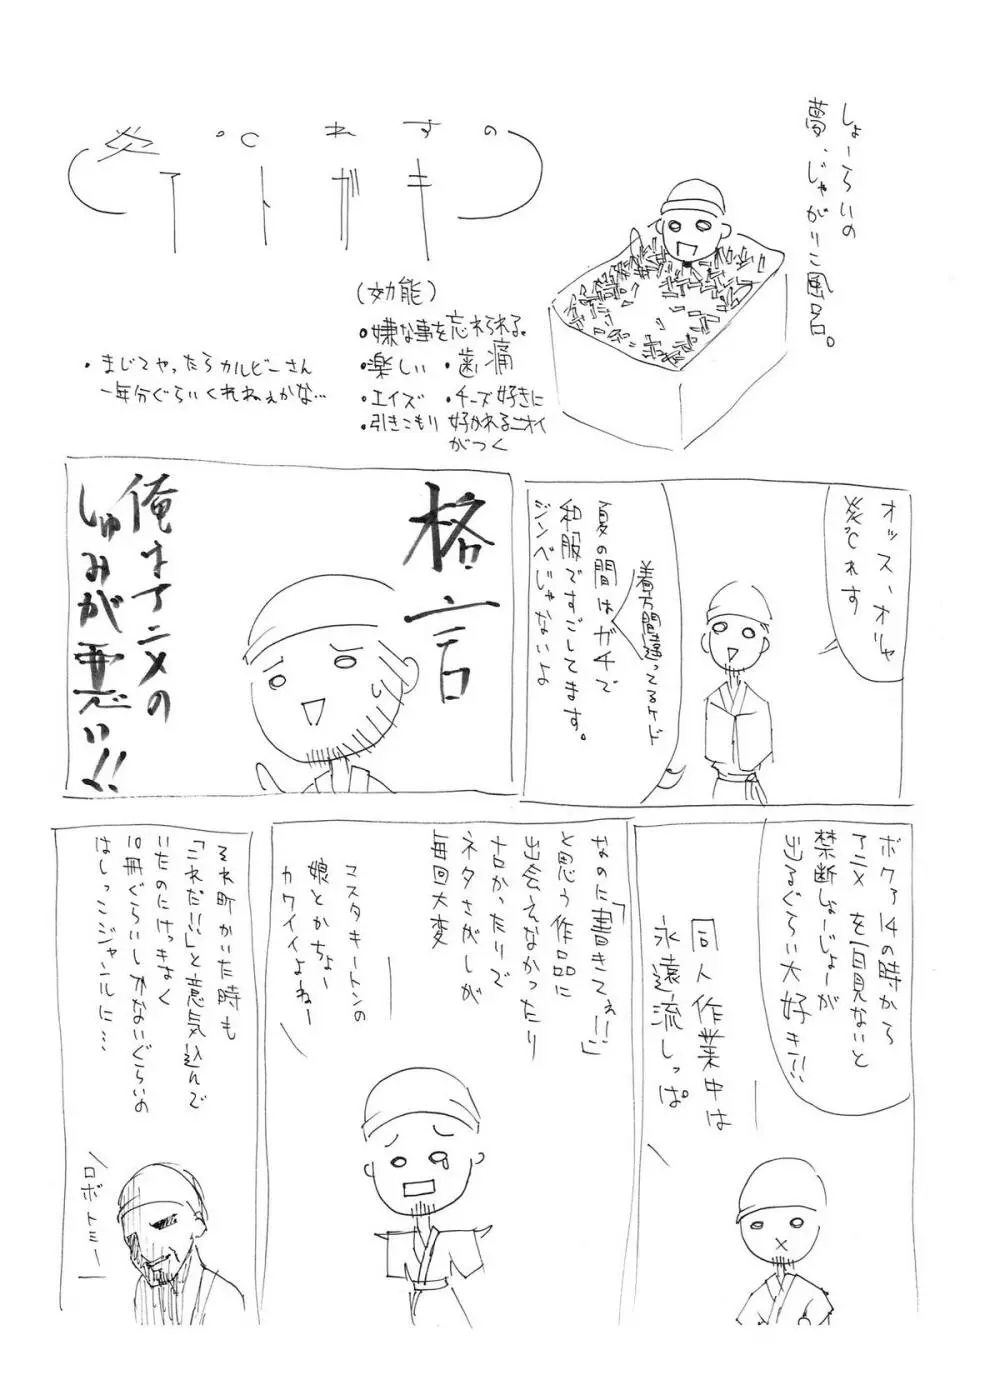 しょーらいの
夢、じゃがりこ風呂。
炎℃れすの
アトガキ
(効能)
・嫌な事を忘れられる。
・楽しい ・歯痛
・エイズ ・チーズ好きに
・引きこもり 好かれるニオイ
がつく
・まじでやったらカルビーさん
一年分ぐらいくれねぇかな…
オッス、オリャ
炎℃れす
夏の間はガチで
和服ですごしてます。
ジンベじゃないよ
着方間違ってるケド
格言
俺はアニメの
しゅみが悪い!!
ボクァ14の時から
アニメを一日見ないと
禁断しょーじょーが
出るぐらい大好き!!
同人作業中は
永遠流しっぱ
なのに「書きてぇ!!」
と思う作品に
出会えなかったり
ナロかったりで
ネタさがしが
毎回大変
マスターキートンの
娘とかちょー
カワイイよねー
それ町かいた時も
「これだ!!」と意気込んで
いたのにけっきょく
10冊ぐらいしかないぐらいの
はしっこジャンルに…
ロボトミー